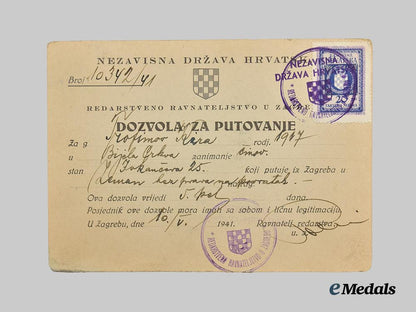 NEZAVISNA DRŽAVA HRVATSKA
Broj: 10342/41
REDARSTVENO RAVNATELJSTVO U ZAGREBU
NEZAVISNA
DRŽAVA HRVATSKA
25
DOZVOLA ZA PUTOVANJE
Za g. Kara rodj. 1917
u Bijela Crkva zanimanje činov.
stan 25. koji putuje iz Zagreba u
Zemun bez prava na povratak
Ova dozvola vrijedi 5. pet dana.
Posjednik ove dozvole mora imati sa sobom i ličnu legitimaciju.
U Zagrebu, dne 10/V. 1941. Ravnatelj redarstva
u. z.
eMedals